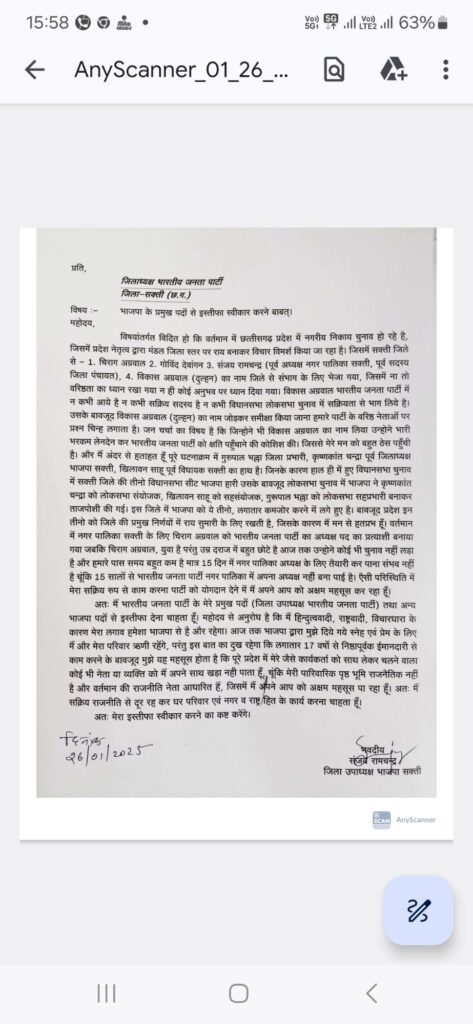 15:58
63%
AnyScanner_01_26_...
प्रति,
जिलाध्यक्ष भारतीय जनता पार्टी
जिला-सक्ती (छ.ग.)
विषय :- भाजपा के प्रमुख पदों से इस्तीफा स्वीकार करने बाबत्।
महोदय,
विषयांतर्गत विदित हो कि वर्तमान में छत्तीसगढ़ प्रदेश में नगरीय निकाय चुनाव हो रहे है,
जिसमें प्रदेश नेतृत्व द्वारा मंडल जिला स्तर पर राय बनाकर विचार विमर्श किया जा रहा है। जिसमें सक्ती जिले
से – 1. चिराग अग्रवाल 2. गोविंद देवांगन 3. संजय रामचन्द्र (पूर्व अध्यक्ष नगर पालिका सक्ती, पूर्व सदस्य
जिला पंचायत), 4. विकास अग्रवाल (दुल्हन) का नाम जिले से संभाग के लिए भेजा गया, जिसमें ना तो
वरिष्ठता का ध्यान रखा गया न ही कोई अनुभव पर ध्यान दिया गया। विकास अग्रवाल भारतीय जनता पार्टी में
न कभी आये है न कभी सक्रिय सदस्य है न कभी विधानसभा लोकसभा चुनाव में सक्रियता से भाग लिये है।
उसके बावजूद विकास अग्रवाल (दुल्हन) का नाम जोड़कर समीक्षा किया जाना हमारे पार्टी के वरिष्ठ नेताओं पर
प्रश्न चिन्ह लगाता है। जन चर्चा का विषय है कि जिन्होने भी विकास अग्रवाल का नाम लिया उन्होने भारी
भरकम लेनदेन कर भारतीय जनता पार्टी को क्षति पहुँचाने की कोशिश की। जिससे मेरे मन को बहुत ठेस पहुँची
है। और मैं अंदर से हताहत हूँ पूरे घटनाक्रम में गुरुपाल भल्ला जिला प्रभारी, कृष्णकांत चन्द्रा पूर्व जिलाध्यक्ष
भाजपा सक्ती, खिलावन साहू पूर्व विधायक सक्ती का हाथ है। जिनके कारण हाल ही में हुए विधानसभा चुनाव
में सक्ती जिले की तीनो विधानसभा सीट भाजपा हारी उसके बावजूद लोकसभा चुनाव में भाजपा ने कृष्णकांत
चन्द्रा को लोकसभा संयोजक, खिलावन साहू को सहसंयोजक, गुरूपाल भल्ला को लोकसभा सहप्रभारी बनाकर
ताजपोशी की गई। इस जिले में भाजपा को ये तीनो, लगातार कमजोर करने में लगे हुए है। बावजूद प्रदेश इन
तीनो को जिले की प्रमुख निर्णयों में राय सुमारी के लिए रखती है, जिसके कारण मैं मन से हतप्रभ हूँ। वर्तमान
में नगर पालिका सक्ती के लिए चिराग अग्रवाल को भारतीय जनता पार्टी का अध्यक्ष पद का प्रत्याशी बनाया
गया जबकि चिराग अग्रवाल, युवा है परंतु उम्र दराज में बहुत छोटे है आज तक उन्होने कोई भी चुनाव नहीं लड़ा
है और हमारे पास समय बहुत कम है मात्र 15 दिन में नगर पालिका अध्यक्ष के लिए तैयारी कर पाना संभव नहीं
है चूंकि 15 सालों से भारतीय जनता पार्टी नगर पालिका में अपना अध्यक्ष नही बना पाई है। ऐसी परिस्थिति में
मेरा सक्रिय रुप से काम करना पार्टी को योगदान देने में मैं अपने आप को अक्षम महसूस कर रहा हूँ।
अतः मैं भारतीय जनता पार्टी के मेरे प्रमुख पदों (जिला उपाध्यक्ष भारतीय जनता पार्टी) तथा अन्य
भाजपा पदों से इस्तीफा देना चाहता हूँ। महोदय से अनुरोध है कि मैं हिन्दुत्ववादी, राष्ट्रवादी, विचारधारा के
कारण मेरा लगाव हमेशा भाजपा से है और रहेगा। आज तक भाजपा द्वारा मुझे दिये गये स्नेह एवं प्रेम के लिए
मैं और मेरा परिवार ऋणी रहेंगे, परंतु इस बात का दुख रहेगा कि लगातार 17 वर्षो से निष्ठापूर्वक ईमानदारी से
काम करने के बावजूद मुझे यह महसूस होता है कि पूरे प्रदेश में मेरे जैसे कार्यकर्ता को साथ लेकर चलने वाला
कोई भी नेता या व्यक्ति को मैं अपने साथ खड़ा नही पाता हूँ, चूंकि मेरी पारिवारिक पृष्ठ भूमि राजनैतिक नहीं
है और वर्तमान की राजनीति नेता आधारित हैं, जिसमें मैं अपने आप को अक्षम महसूस पा रहा हूँ। अतः मैं
सक्रिय राजनीति से दूर रह कर घर परिवार एवं नगर व राष्ट्र हित के कार्य करना चाहता हूँ।
अतः मेरा इस्तीफा स्वीकार करने का कष्ट करेंगे।
दिनांक
26/01/2025
भवदीय
संजय रामचन्द्र
जिला उपाध्यक्ष भाजपा सक्ती
SCAN AnyScanner